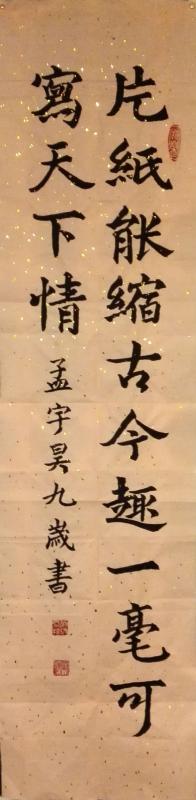 片紙能縮古今趣一毫可
寫天下情
孟宇昊九歲書